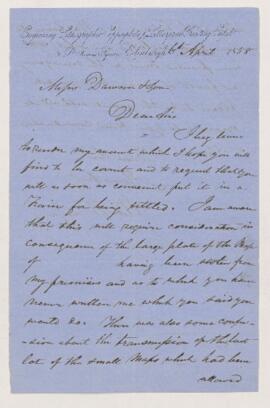 Engraving, Lithographic, Copperplate & Letterpress Printing
Edinburgh 6th April 1858
Messrs Dawson & Son
Dear Sirs
I beg leave
to render my account which I hope you will
find to be correct and to request that you
will as soon as convenient put it in a
train for being settled. I am aware
that this will require consideration in
consequence of the large plate of the Map
of having been stolen from
my premises and as to which you have
never written me what you said you
would do. There was also some confu-
-sion about the transmission of the last
lot of the small Maps which had been
altered